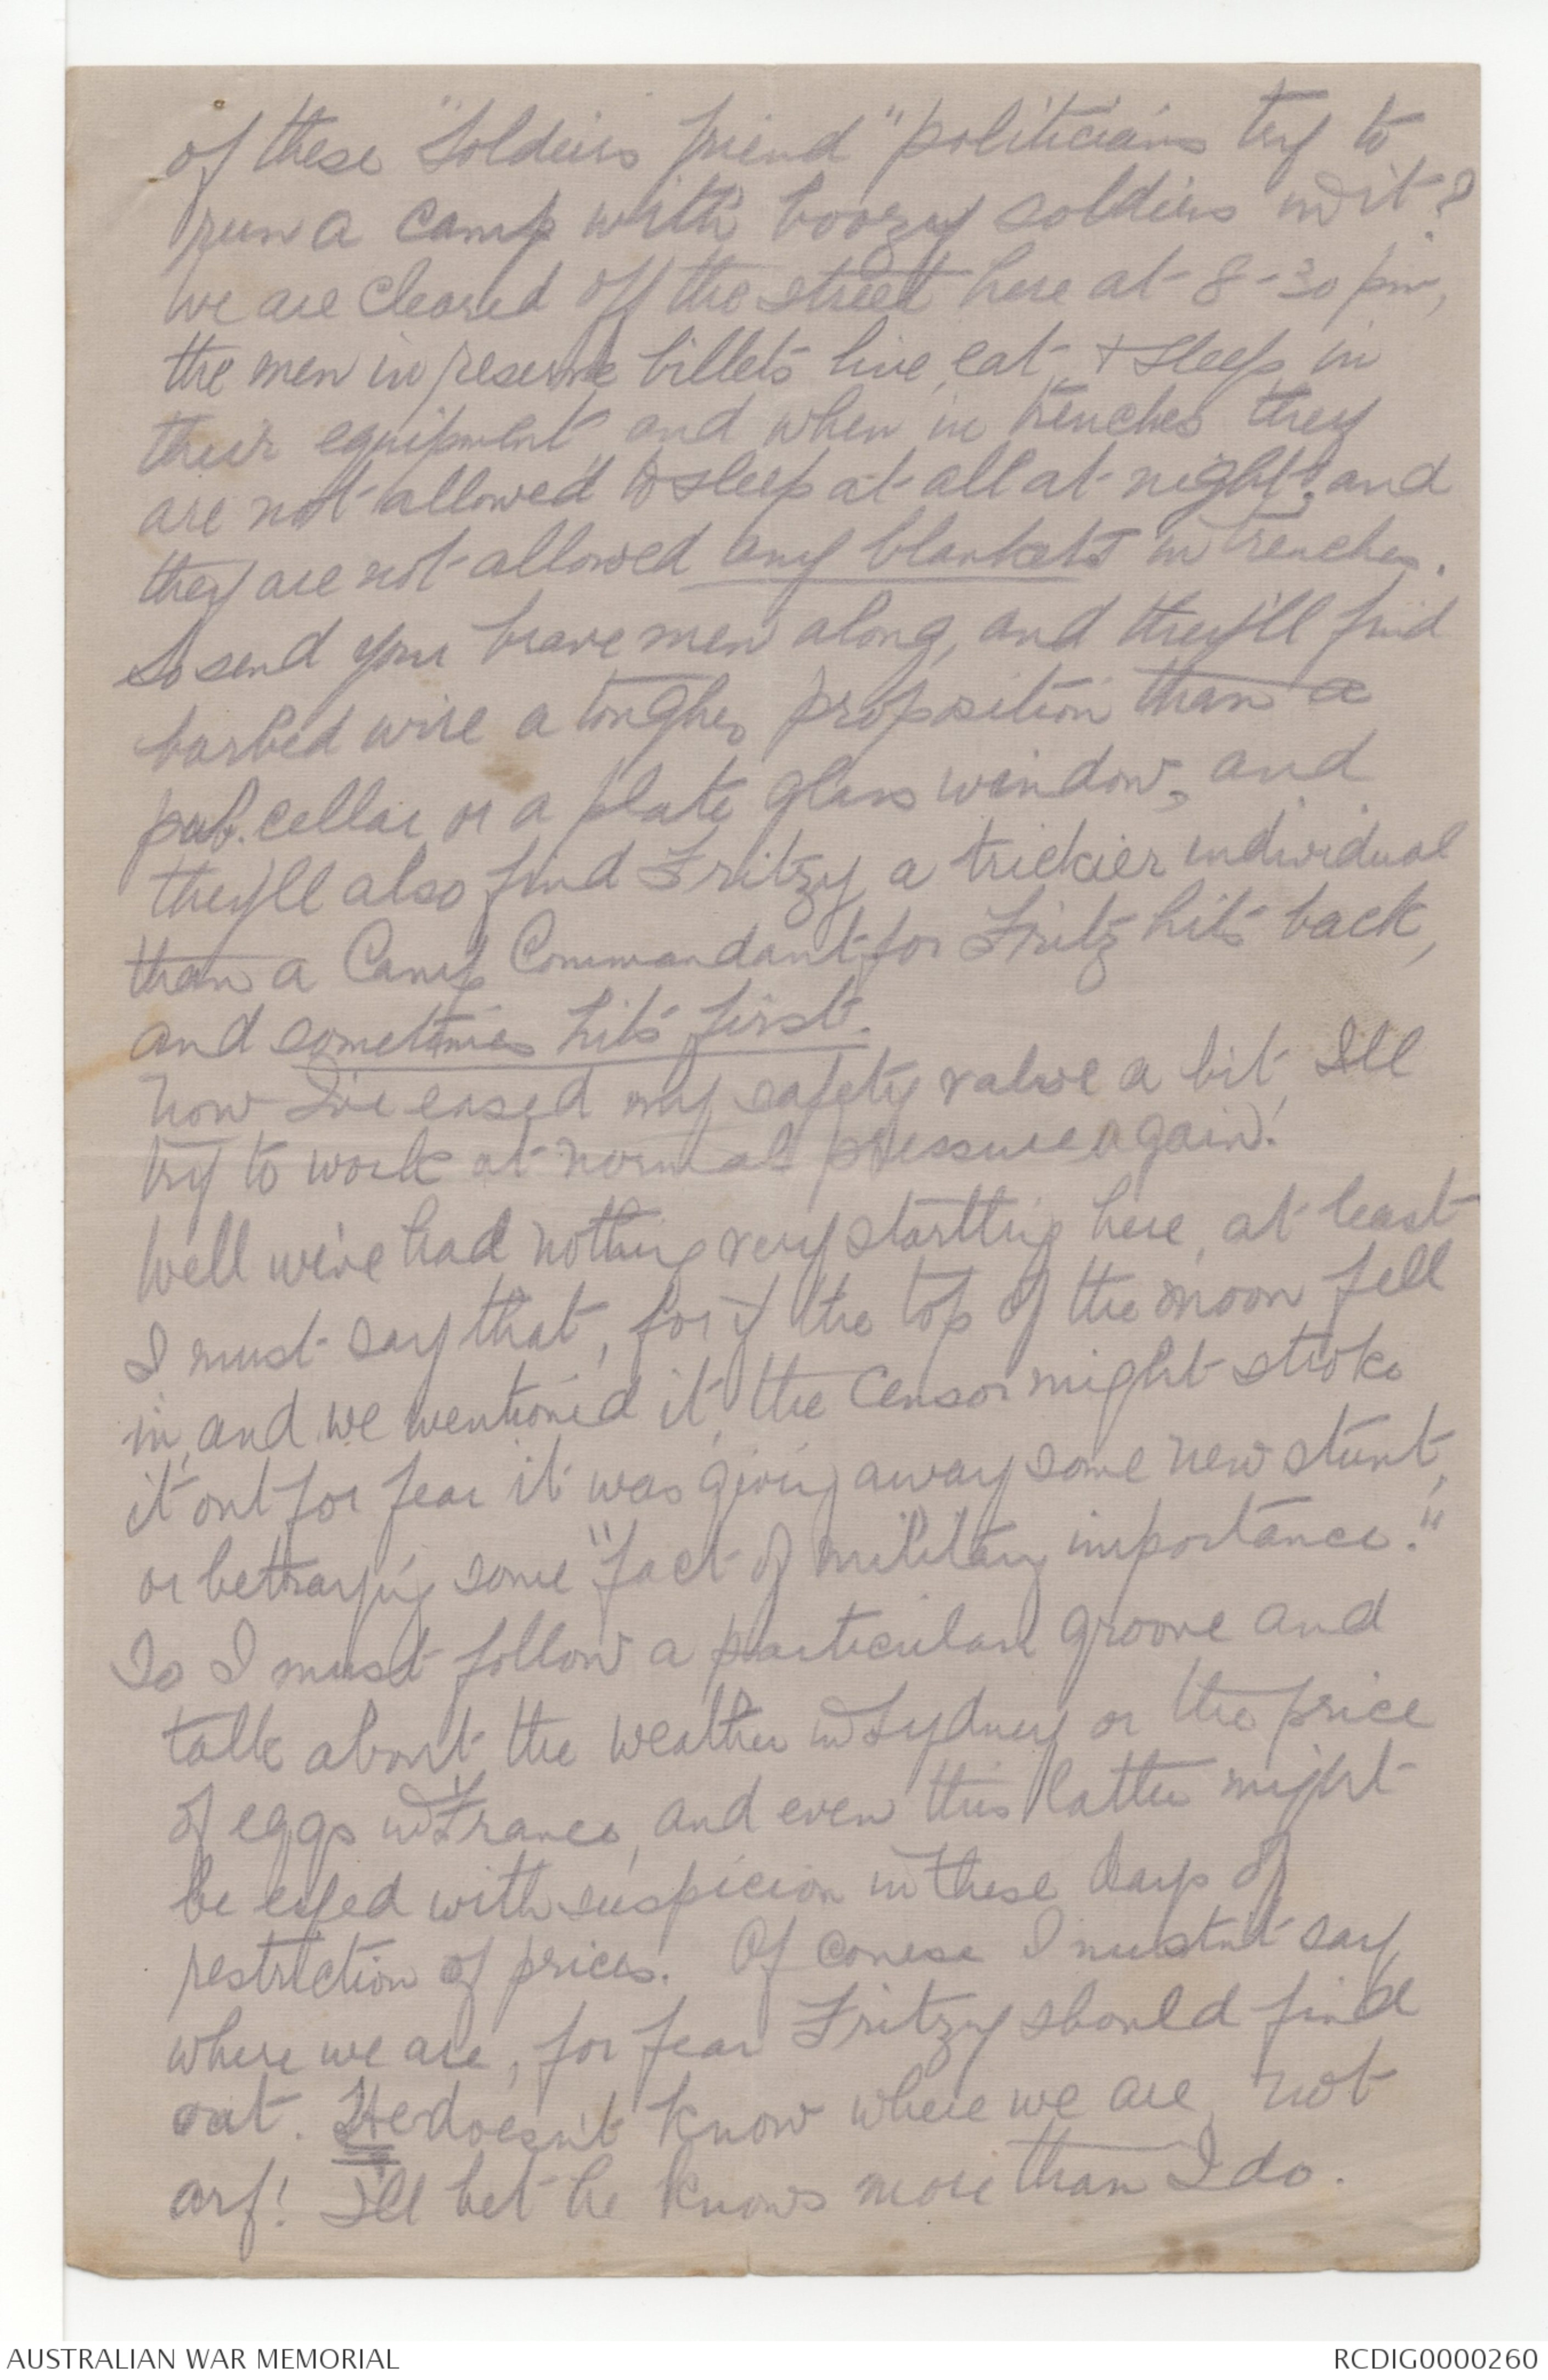 of these "Soldiers friend" politicians try to
run a camp with boozy soldiers in it?
We are cleared off the street here at 8-30 pm,
the men in reserve billets live, eat, & sleep in
their equipment, and when in trenches they
are not allowed to sleep at all at night, and
they are not allowed any blankets in trenches.
So send your brave men along, and they'll find
barbed wire a tougher proposition than a
pub. cellar or a plate glass window, and
they'll also find Fritzy a trickier individual
than a Camp Commandant for Fritz hits back,
and sometimes hits first.
Now I've eased my safety valve a bit, I'll
try to work at normal pressure again.
Well we've had nothing very startling here, at least
I must say that, for if the top of the moon fell
in, and we mentioned it, the Censor might stroke
it out for fear it was giving away some new stunt,
or betraying some "fact of military importance."
So I must follow a particular groove and
talk about the weather in Sydney or the price
of eggs in France, and even this latter might
be eyed with suspicion in these days of
restriction of prices. Of course I mustn't say
where we are, for fear Fritzy should find
out. He doesn't know where we are, not
arf! I'll bet he knows more than I do.
AUSTRALIAN WAR MEMORIAL
RCDIG0000260